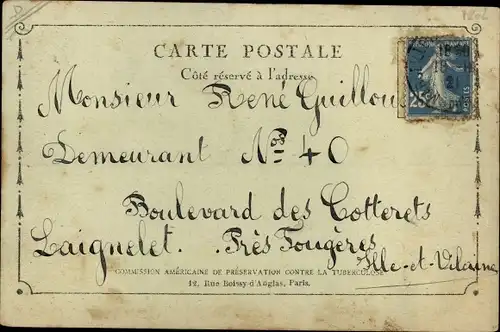 CARTE POSTALE
Côté réservé à l'adresse
25
POSTES
Monsieur René Guillou
Demeurant Nos 40
Boulevard des Cotterets
Laignelet. Près Fougères
Ille-et-Vilaine
COMMISSION AMÉRICAINE DE PRÉSERVATION CONTRE LA TUBERCULOSE
12, Rue Boissy-d'Anglas, Paris.